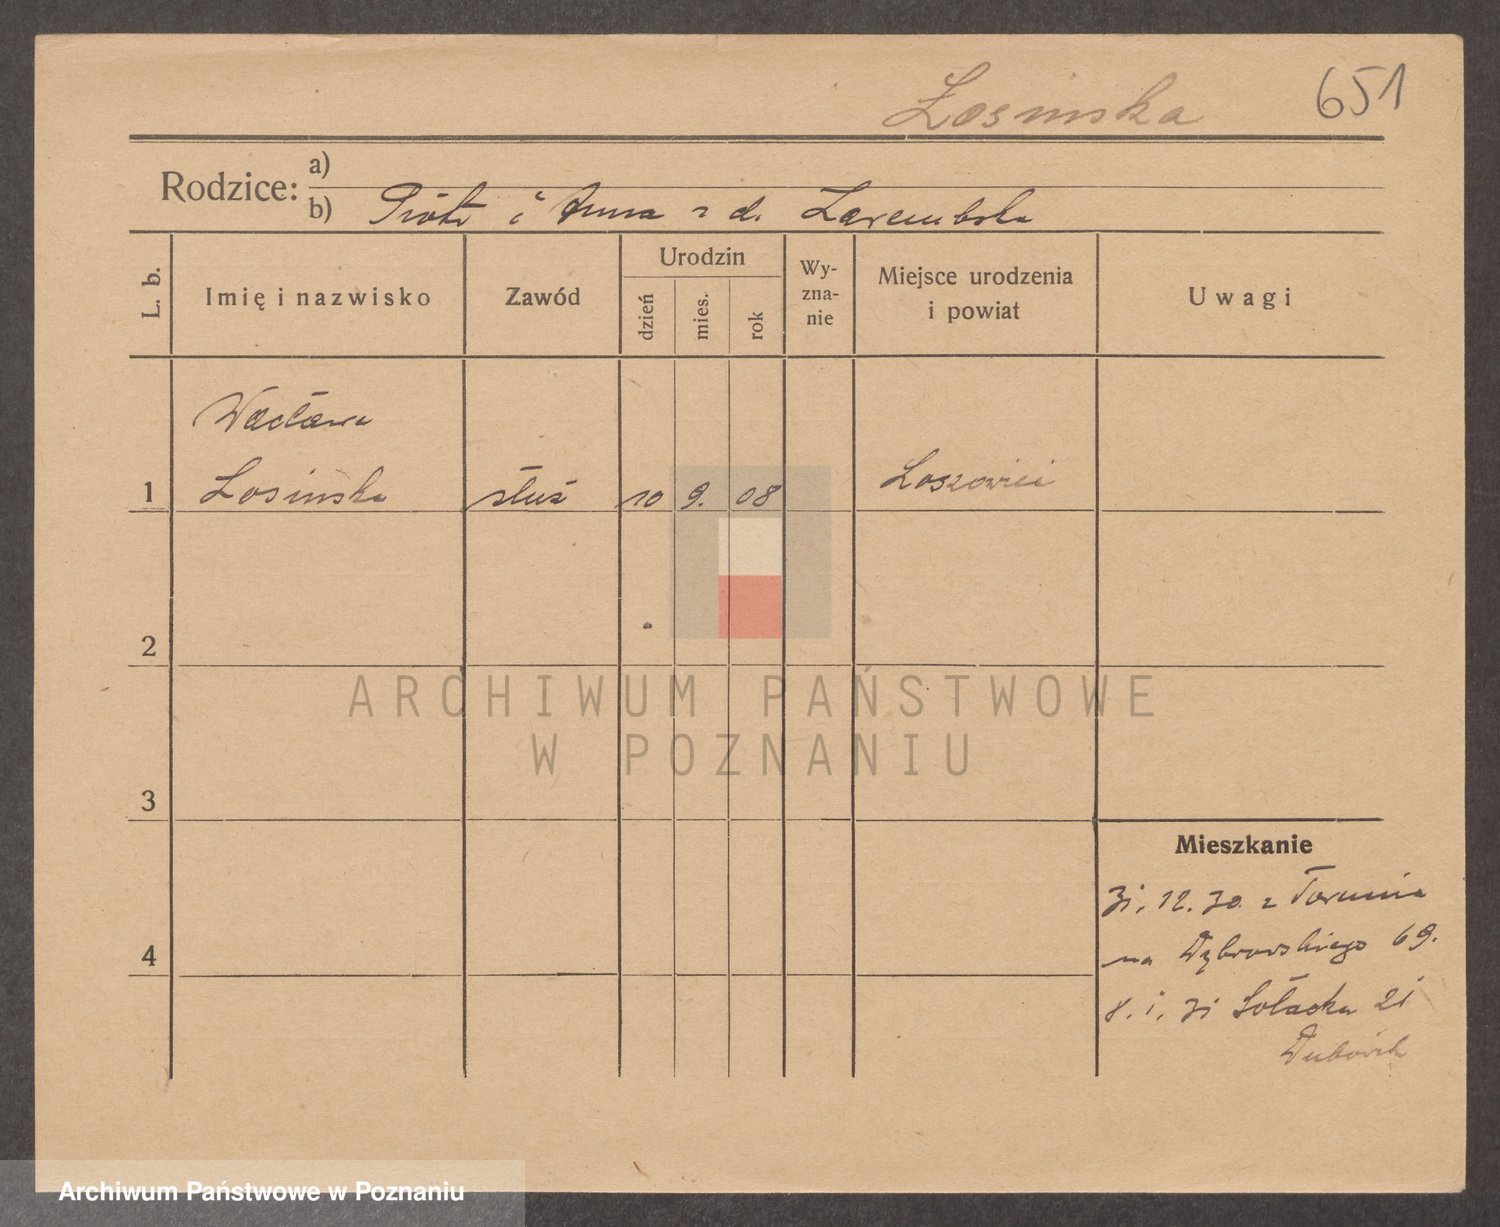 Łosinska
651
Rodzice: a)
b) Piotr i Anna z d. Zarembska
L. b.
Imię i nazwisko
Zawód
Urodzin
dzień
mies.
rok
Wy-
zna-
nie
Miejsce urodzenia
i powiat
Uwagi
Wacława
1 Łosinska służ 10 9. 08
2
3
4
Mieszkanie
31. 12. 30 z Torunia
na Dąbrowskiego 69.
8. 1. 31 Sołacka 21
ARCHIWUM PAŃSTWOWE
W POZNANIU
Archiwum Państwowe w Poznaniu